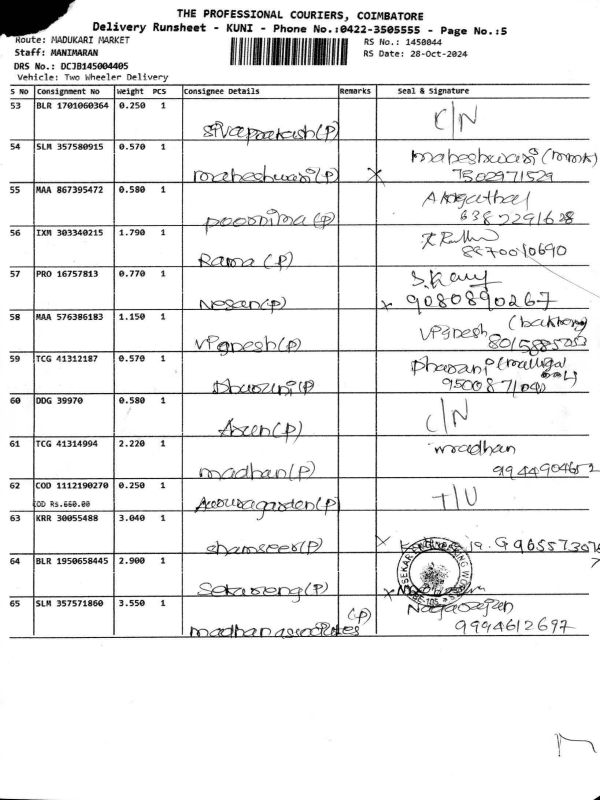 THE PROFESSIONAL COURIERS, COIMBATORE
Delivery Runsheet - KUNI - Phone No.:0422-3505555 - Page No.:5
Route: MADUKARI MARKET RS No.: 1450044
Staff: MANIMARAN RS Date: 28-Oct-2024
DRS No.: DCJB145004405
Vehicle: Two Wheeler Delivery
S No Consignment No Weight PCS Consignee Details Remarks Seal & Signature
53 BLR 1701060364 0.250 1 C/N
Sivaprakash(p)
54 SLM 357580915 0.570 1 maheshwari
maheshwari(p) X 7502971529
55 MAA 867395472 0.580 1
poornima(p)
56 IXM 303340215 1.790 1
Rama (p)
57 PRO 16757813 0.770 1
Nesan(p) x 9080890267
58 MAA 576386183 1.150 1 VPgnesh
VPgnesh(p)
59 TCG 41312187 0.570 1 Dharani
Dharani(p)
60 DDG 39970 0.580 1 C/N
Arun(p)
61 TCG 41314994 2.220 1 madhan
madhan(p)
62 COD 1112190270 0.250 1 T/U
COD Rs.660.00
63 KRR 30055488 3.040 1
shamseer(p) x
64 BLR 1950658445 2.900 1
Sekareng(p) x
65 SLM 357571860 3.550 1 (p) Nagarajan
madhan associates 9994612697